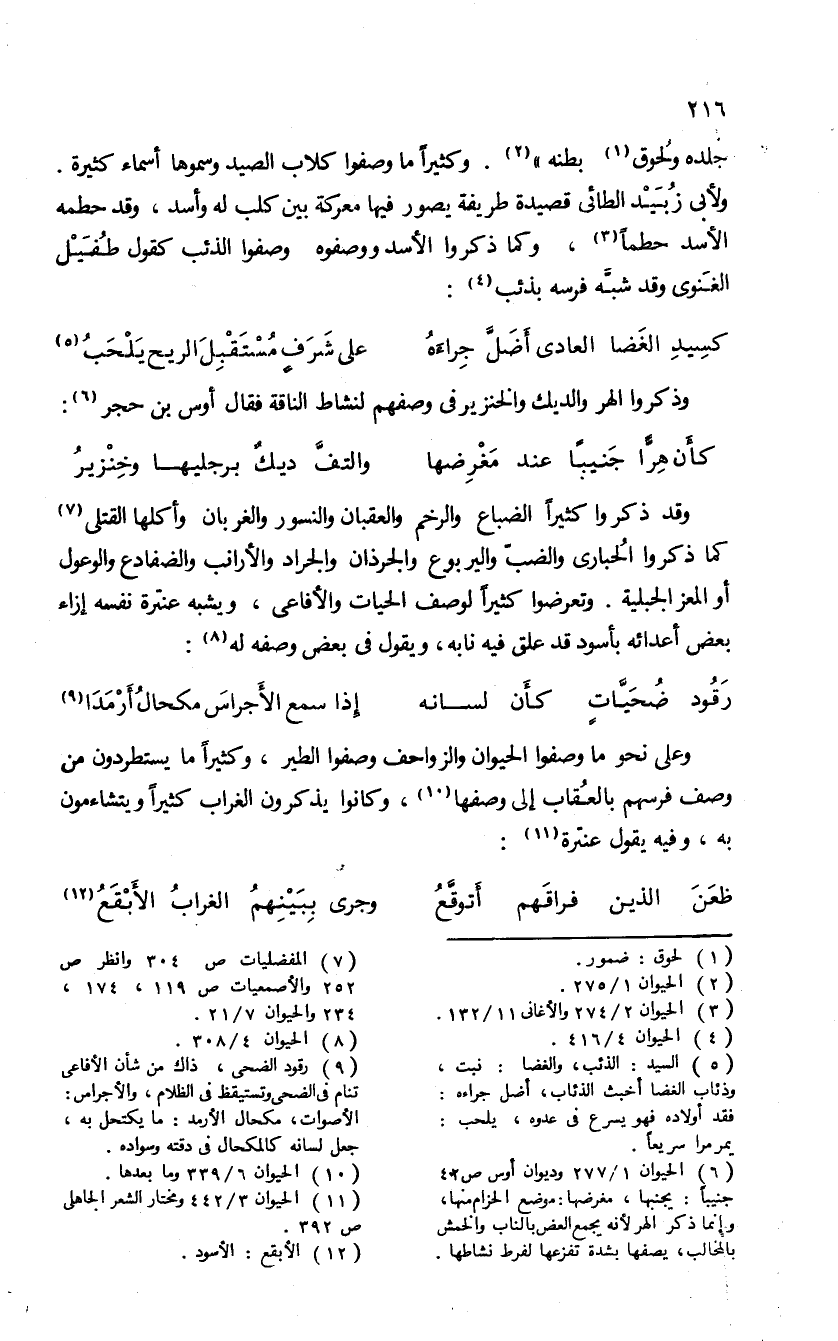 ٢١٦
جلده ولُحوق(١) بطنه »(٢) . وكثيراً ما وصفوا كلاب الصيد وسموها أسماء كثيرة .
ولأبى زُبَيْد الطائى قصيدة طريفة يصور فيها معركة بين كلب له وأسد ، وقد حطمه
الأسد حطماً(٣) ، وكما ذكروا الأسد ووصفوه وصفوا الذئب كقول طُفَيْل
الغَنوى وقد شبَّه فرسه بذئب(٤) :
كسِيدِ الغَضا العادى أَضلَّ جِراءَهُ على شَرَفٍ مُسْتَقْبِلَ الريح يَلْحَبُ(٥)
وذكروا الهر والديك والخنزير فى وصفهم لنشاط الناقة فقال أوس بن حجر(٦) :
كأَن هِرًّا جَنيبًا عند مَغْرِضها والتفَّ ديكٌ برجليهـا وخِنْزيرُ
وقد ذكروا كثيراً الضباع والرخم والعقبان والنسور والغربان وأكلها القتلى(٧)
كما ذكروا الحُبارى والضبّ واليربوع والجرذان والجراد والأرانب والضفادع والوعول
أو المعز الجبلية . وتعرضوا كثيراً لوصف الحيات والأفاعى ، ويشبه عنترة نفسه إزاء
بعض أعدائه بأسود قد علق فيه نابه، ويقول فى بعض وصفه له(٨) :
رَقُود ضُحَيَّاتٍ كأَن لسـانه إذا سمع الأَجراسَ مكحالُ أَرْمَدَا(٩)
وعلى نحو ما وصفوا الحيوان والزواحف وصفوا الطير ، وكثيراً ما يستطردون من
وصف فرسهم بالعُقاب إلى وصفها(١٠) ، وكانوا يذكرون الغراب كثيراً ويتشاءمون
به ، وفيه يقول عنترة(١١) :
ظعَنَ الذين فراقَهم أَتوقَّعُ وجرى بِبَيْنِهمُ الغرابُ الأَبْقَعُ(١٢)
(١) لحوق : ضمور.
(٢) الحيوان ٢٧٥/١ .
(٣) الحيوان ٢٧٤/٢ والأغانى ١٣٢/١١ .
(٤) الحيوان ٤١٦/٤ .
(٥) السيد : الذئب، والغضا : نبت ،
وذئاب الغضا أخبث الذئاب، أضل جراءه :
فقد أولاده فهو يسرع فى عدوه ، يلحب :
يمر مرا سريعاً .
(٦) الحيوان ٢٧٧/١ وديوان أوس ص ٤٢
جنيباً : يجنبها ، مغرضها : موضع الحزام منها،
وإنما ذكر الهر لأنه يجمع العض بالناب والخمش
بالمخالب، يصفها بشدة تفزعها لفرط نشاطها .
(٧) المفضليات ص ٣٠٤ وانظر ص
٢٥٢ والأصمعيات ص ١١٩ ، ١٧٤ ،
٢٣٤ والحيوان ٢١/٧ .
(٨) الحيوان ٣٠٨/٤ .
(٩) رقود الضحى ، ذاك من شأن الأفاعى
تنام فى الضحى وتستيقظ فى الظلام ، والأجراس :
الأصوات، مكحال الأرمد : ما يكتحل به ،
جعل لسانه كالمكحال فى دقته وسواده .
(١٠) الحيوان ٣٣٩/٦ وما بعدها .
(١١) الحيوان ٤٤٢/٣ ومختار الشعر الجاهلى
ص ٣٩٢ .
(١٢) الأبقع : الأسود .